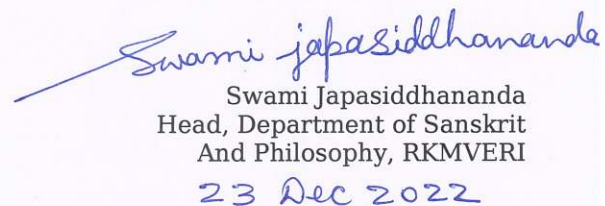 Swami japasiddhananda
Swami Japasiddhananda
Head, Department of Sanskrit
And Philosophy, RKMVERI
23 Dec 2022